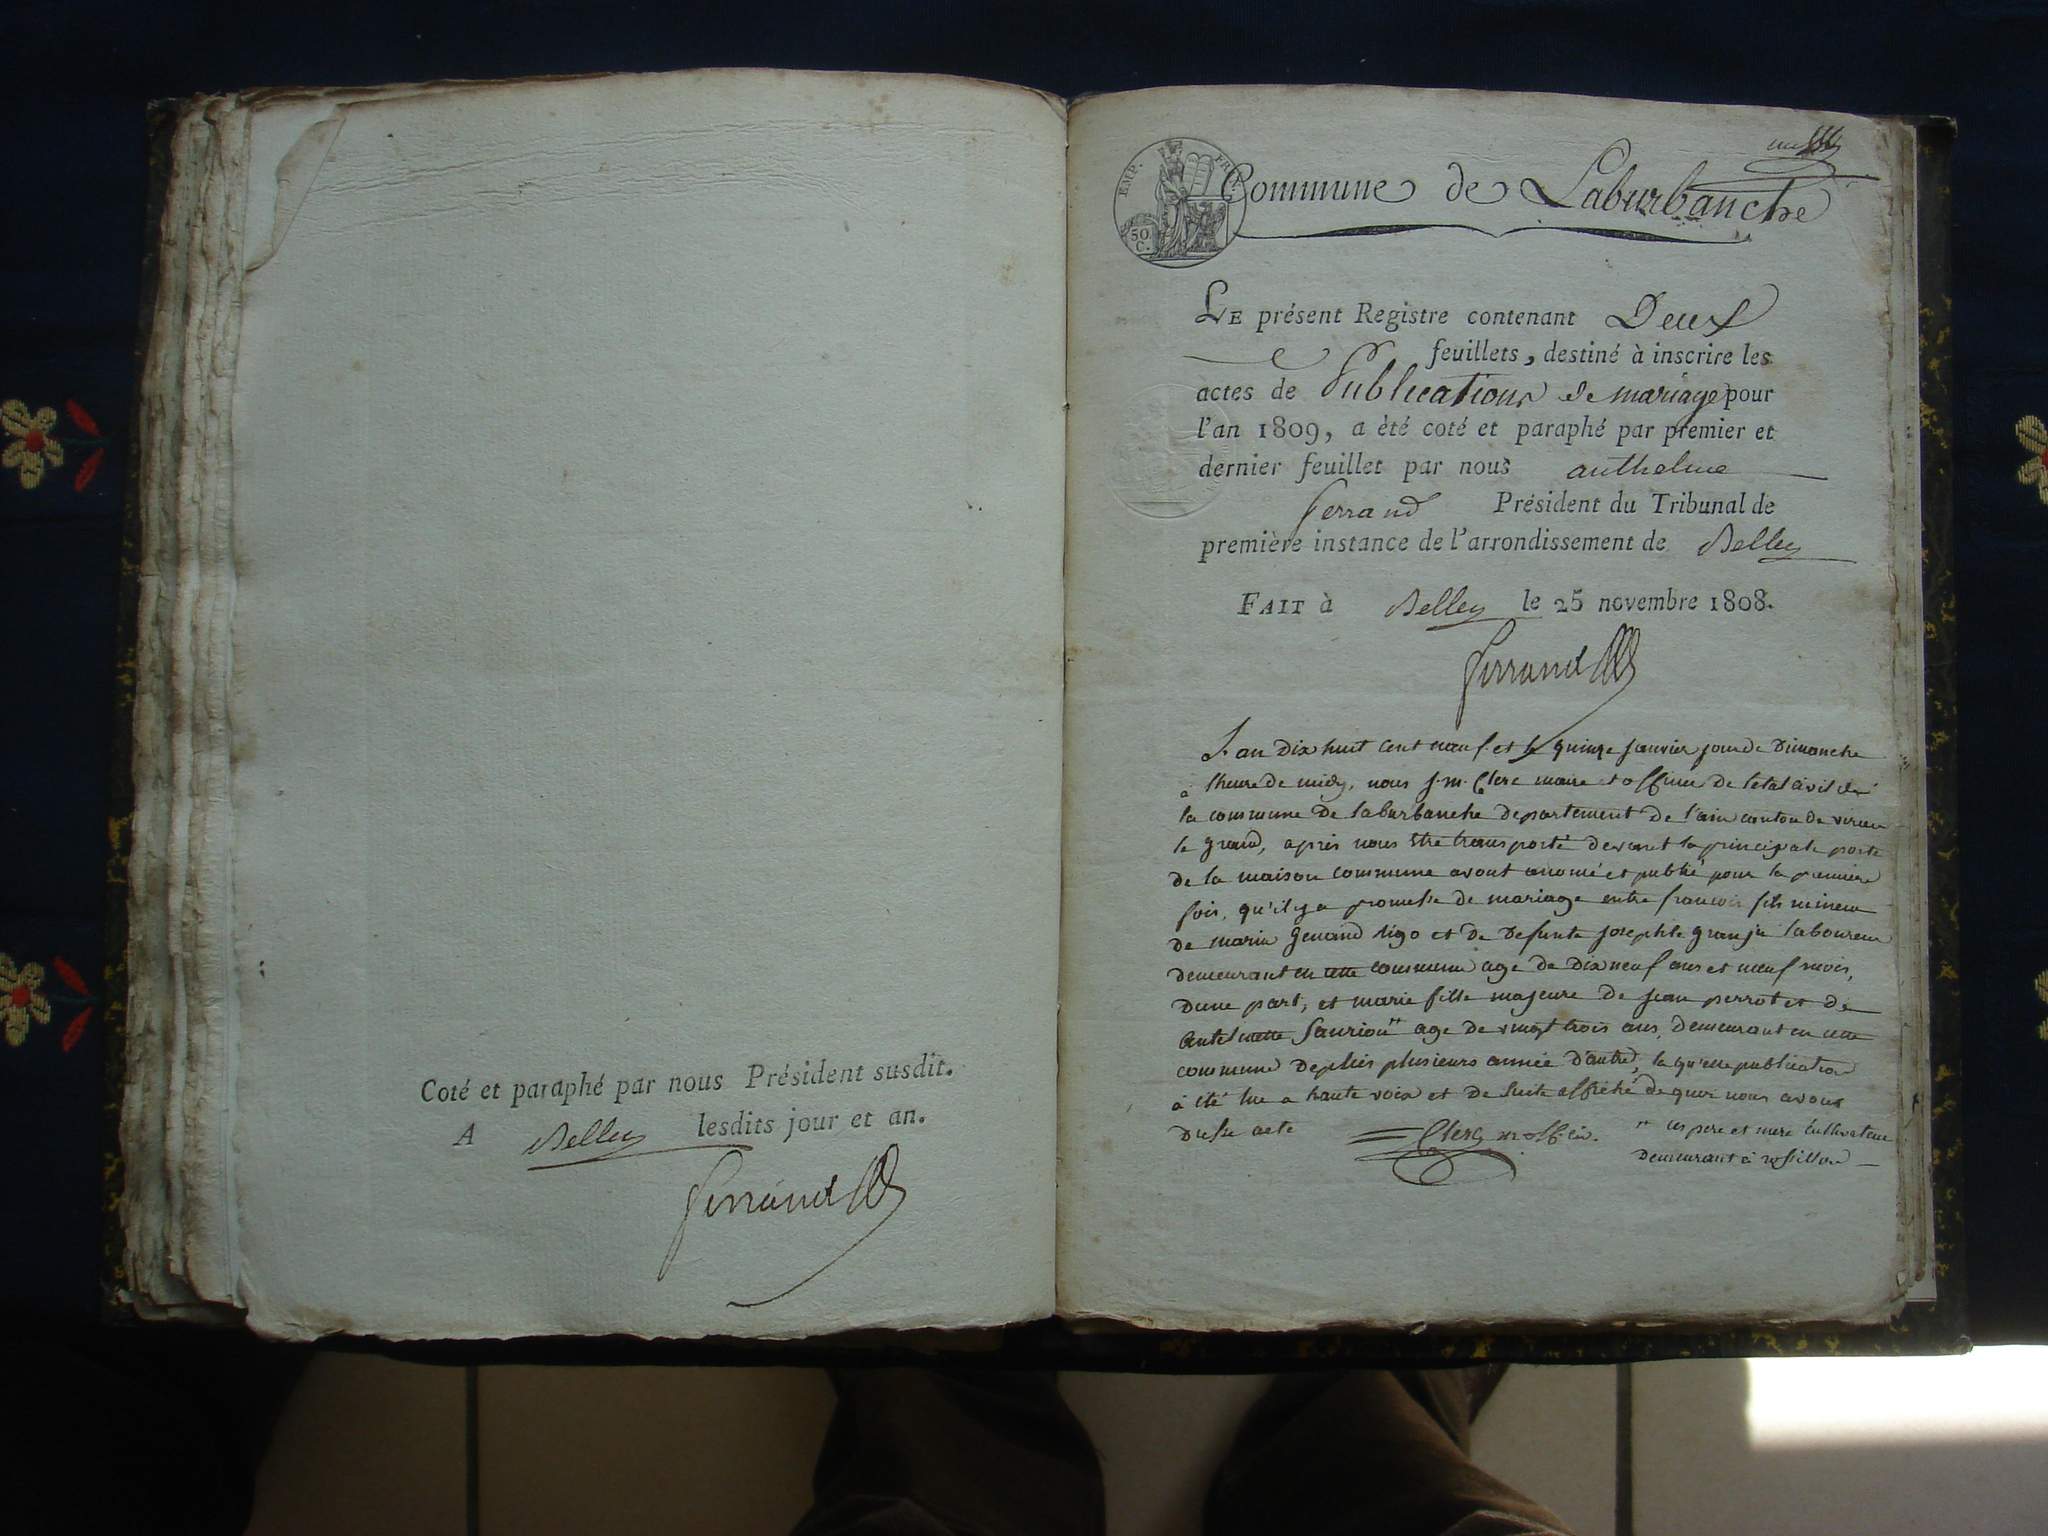 Coté et paraphé par nous Président susdit.
A Belley lesdits jour et an.
Ferrand
un
EMP. FR
50 C.
Commune de Laburbanche
LE présent Registre contenant Deux
feuillets, destiné à inscrire les
actes de Publications de mariage pour
l'an 1809, a èté coté et paraphé par premier et
dernier feuillet par nous anthelme
ferrand Président du Tribunal de
première instance de l'arrondissement de Belley
FAIT à Belley le 25 novembre 1808.
Ferrand
L'an Dix huit cent neuf et le quinze janvier jour de Dimanche
a lheure de midy, nous j. m. Clerc maire et officier de l'etat civil de
la commune de laburbanche departement de l'ain canton de virieu
le grand, après nous être transporté devant la principale porte
de la maison commune avons anoncé et publié pour la premiere
fois, qu'il y a promesse de mariage entre francois fils mineur
de marin Genand rigo et de Defunte josephte granja laboureur
demeurant en cette commune age de Dix neuf ans et neuf mois,
Dune part, et marie fille majeure de jean perrot et de
age de vingt trois ans, demeurant en cette
commune Depuis plusieurs année d'autre, la qu'elle publication
à été lue a haute voix et de suite affiché de quoi nous avons
Dressé acte Clerc
ces pere et mere Cultivateur
Demeurant à rossillon